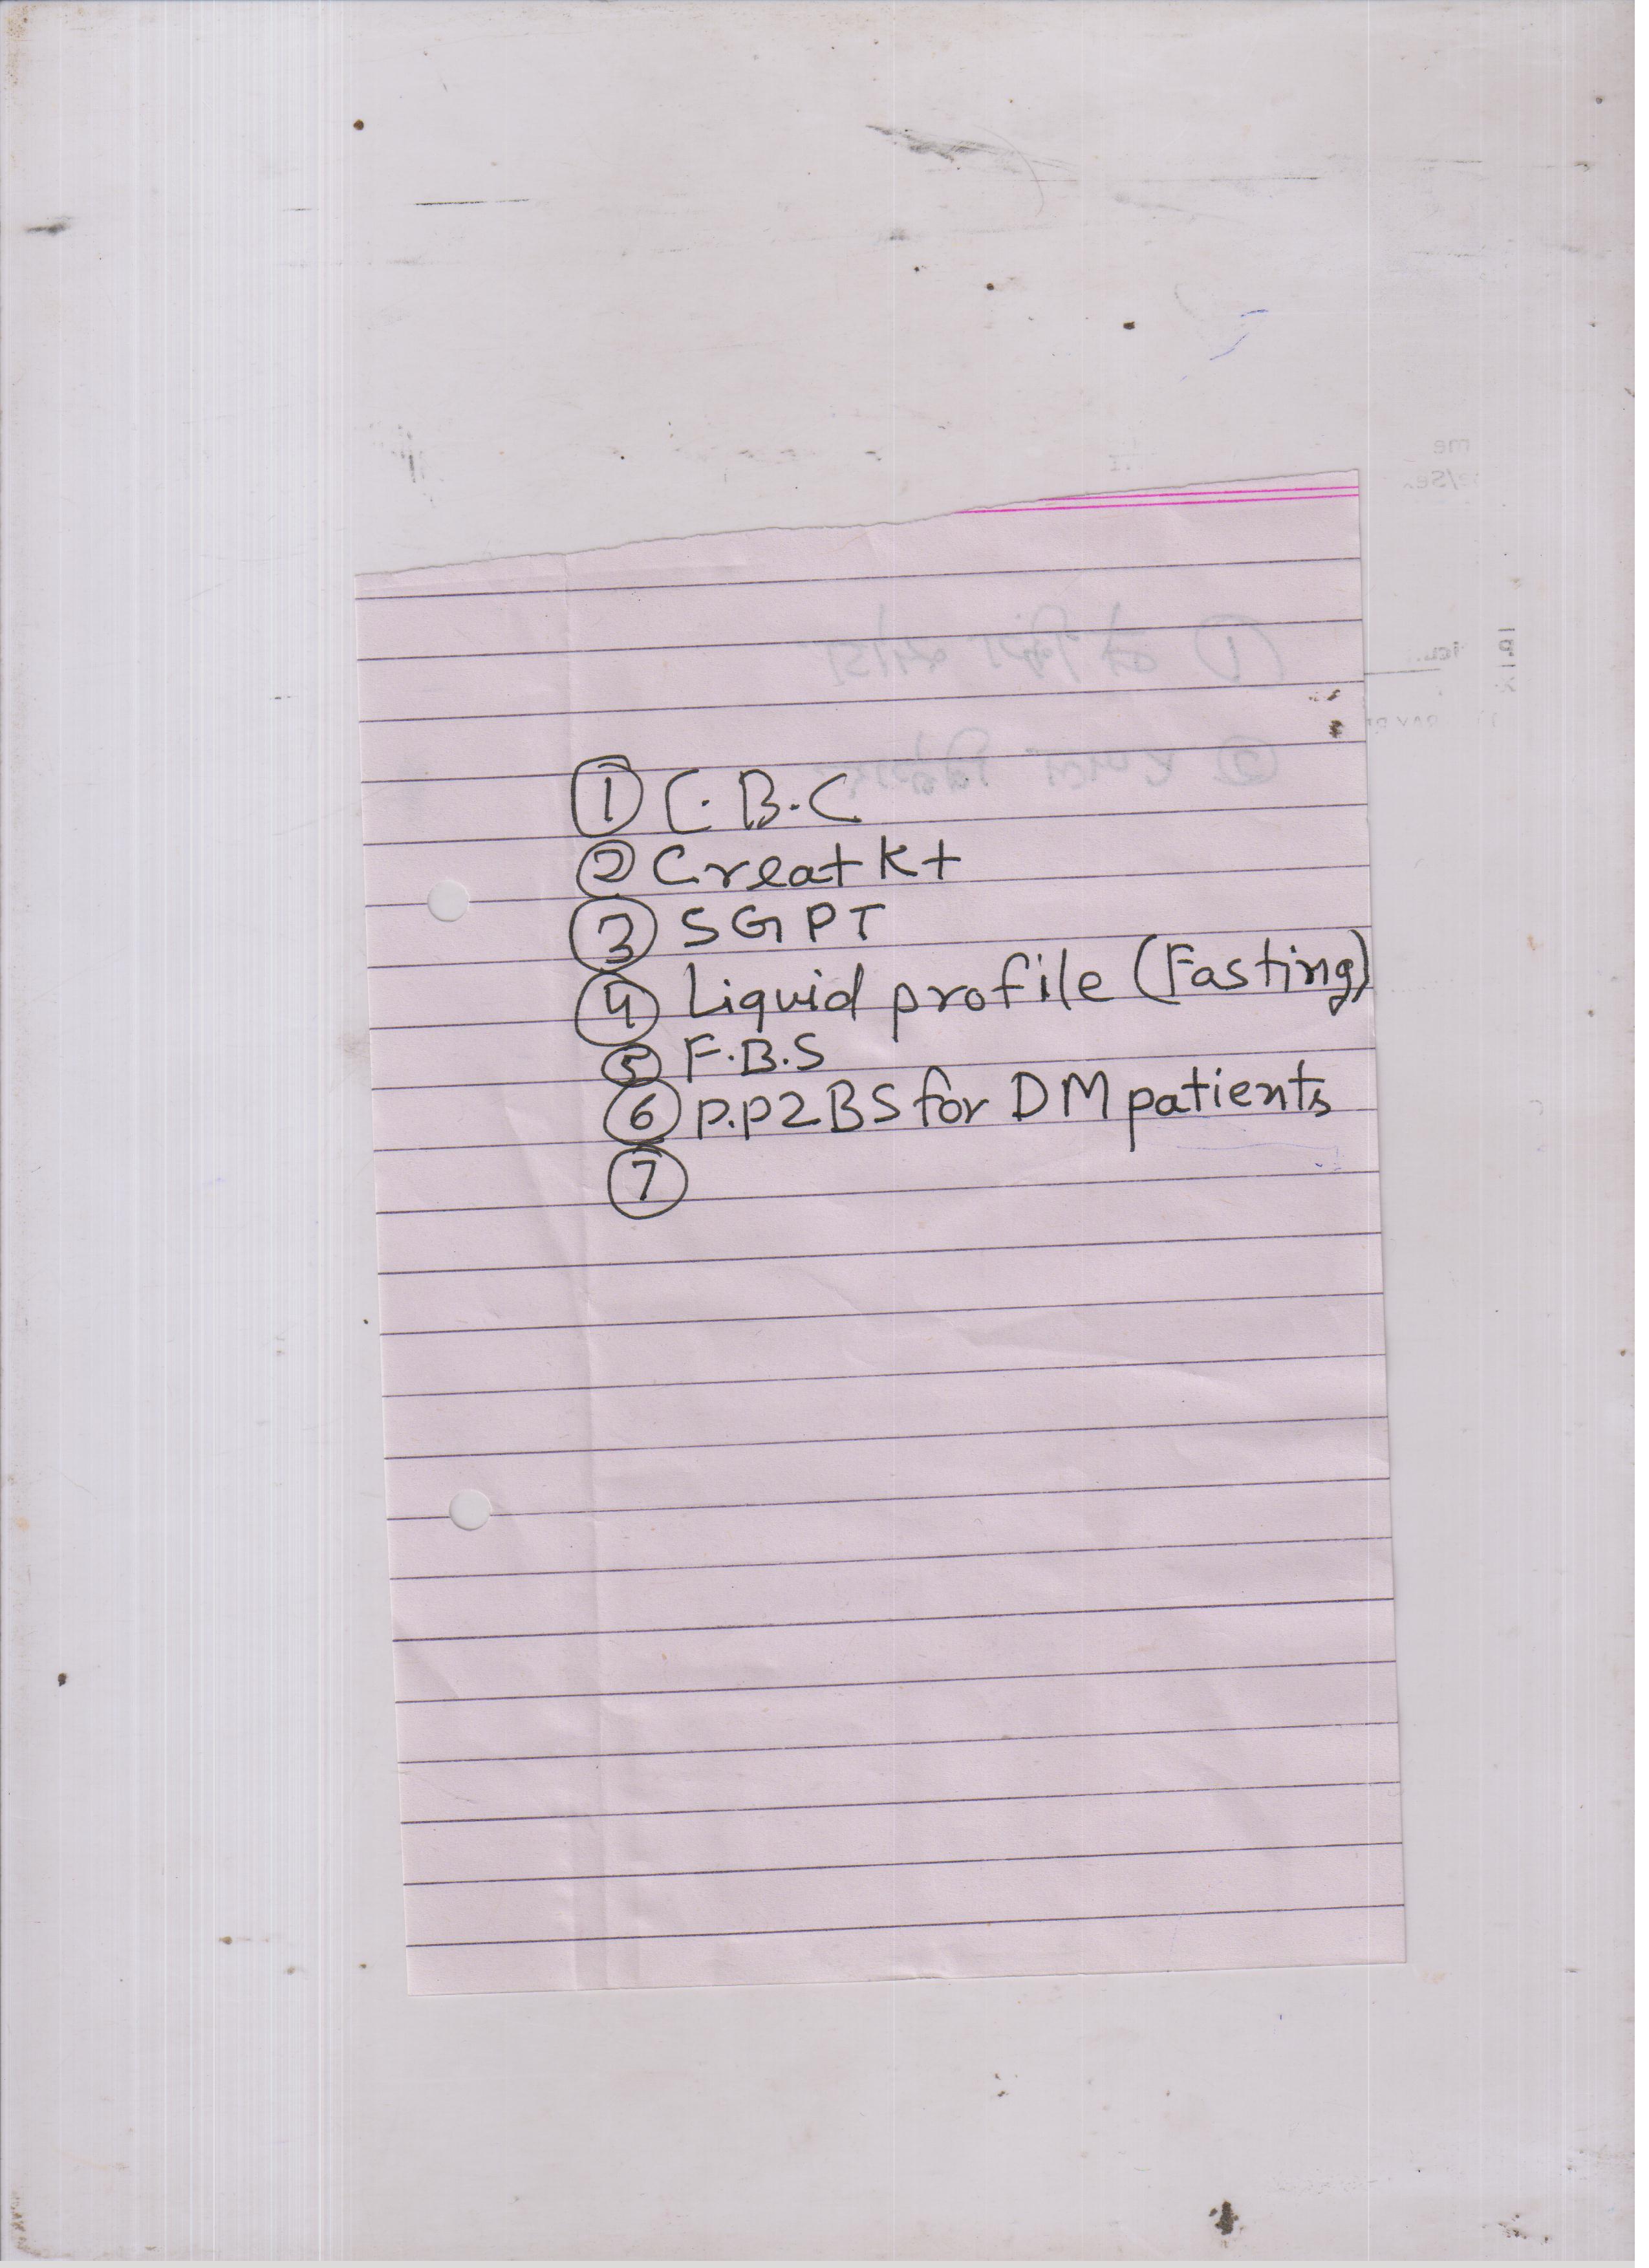 ① C.B.C
② Creat K+
③ SGPT
④ Liquid profile (Fasting)
⑤ F.B.S
⑥ P.P2BS for DM patients
⑦